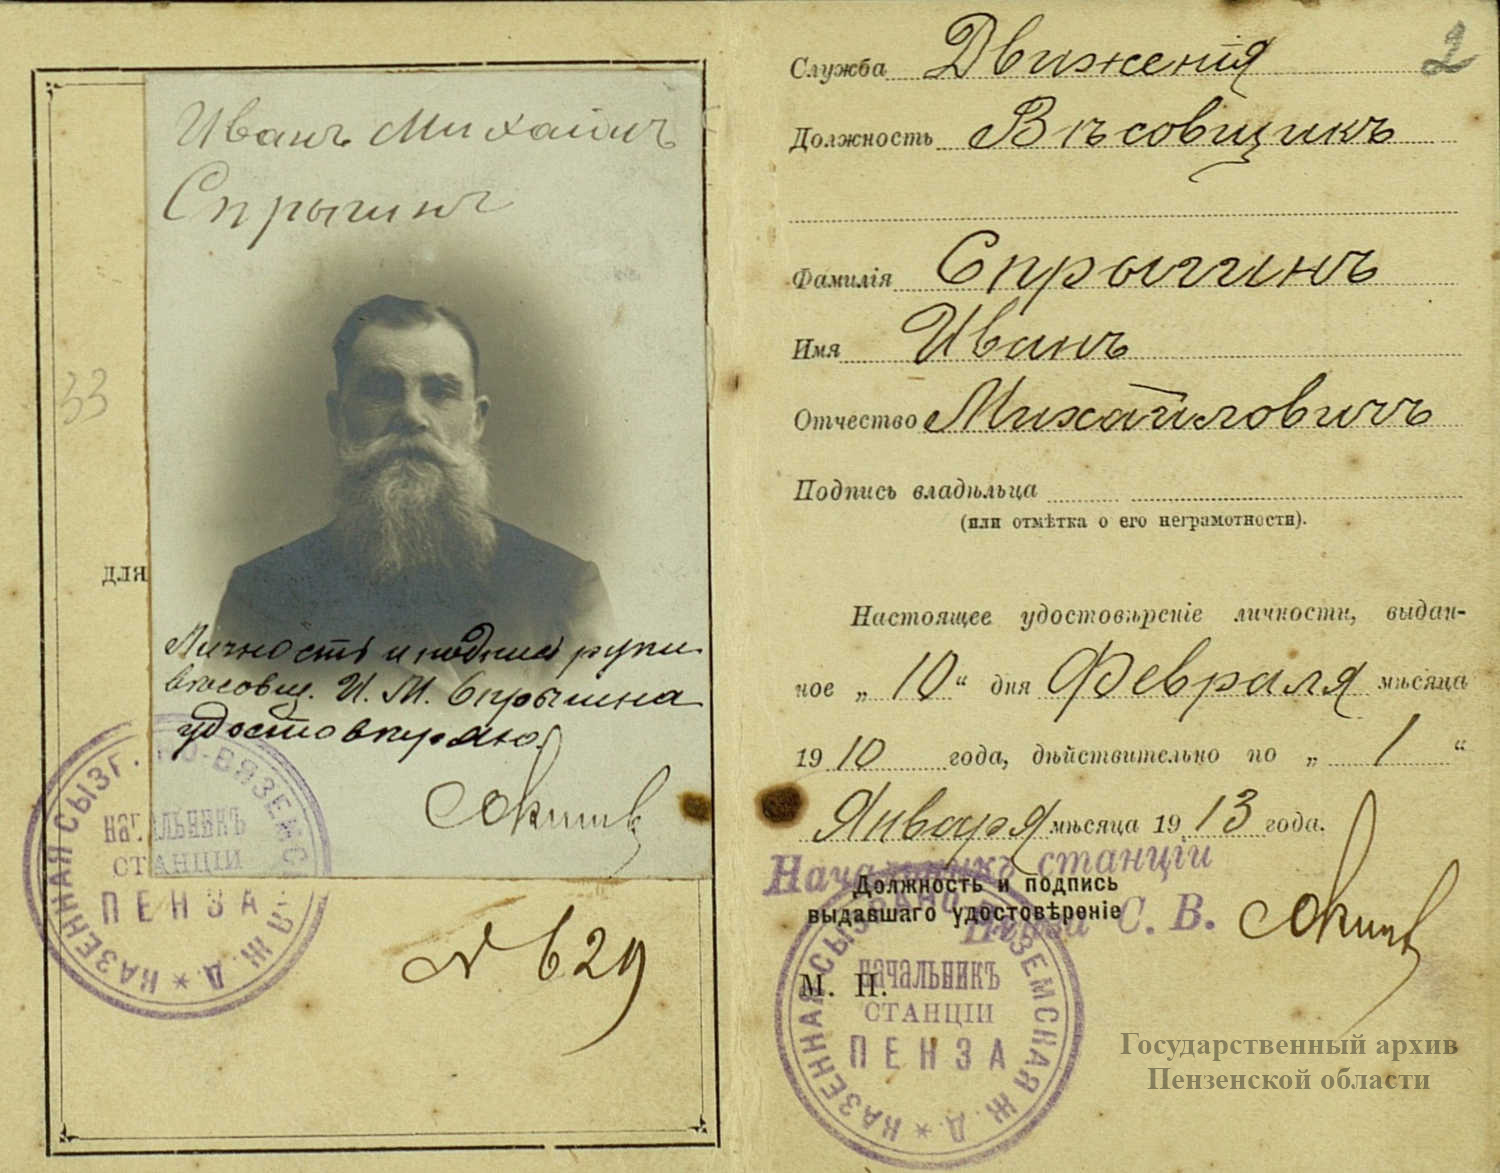 Иванъ Михайл.
Спрыгинъ
33
для
Личность и подпись руки
вѣсовщ. И. М. Спрыгина
удостовѣряю.
КАЗЕННАЯ СЫЗР.-ВЯЗЕМСКАЯ Ж. Д.
НАЧАЛЬНИКЪ
СТАНЦІИ
ПЕНЗА
№ 629
2
Служба Движенія
Должность Вѣсовщикъ
Фамилія Спрыгинъ
Имя Иванъ
Отчество Михайловичъ
Подпись владѣльца
(или отмѣтка о его неграмотности).
Настоящее удостовѣреніе личности, выдан-
ное „ 10 “ дня Февраля мѣсяца
1910 года, дѣйствительно по „ 1 “
Января мѣсяца 1913 года.
Начальникъ станціи
Должность и подпись
выдавшаго удостовѣреніе
Пенза С. В.
М. П.
КАЗЕННАЯ СЫЗРАНО-ВЯЗЕМСКАЯ Ж. Д.
НАЧАЛЬНИКЪ
СТАНЦІИ
ПЕНЗА
Государственный архив
Пензенской области